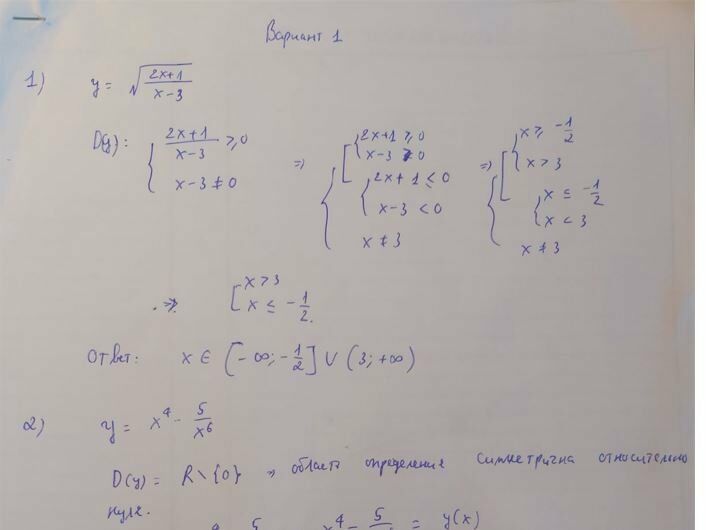 Вариант 1
1) y = √((2x+1)/(x-3))
D(y): { (2x+1)/(x-3) ≥ 0 ; x-3 ≠ 0 ⇒ { [ { 2x+1 ≥ 0 ; x-3 > 0 ; { 2x+1 ≤ 0 ; x-3 < 0 ; x ≠ 3 ⇒ { [ { x ≥ -1/2 ; x > 3 ; { x ≤ -1/2 ; x < 3 ; x ≠ 3
⇒ [ x > 3 ; x ≤ -1/2.
Ответ: x ∈ [-∞; -1/2] ∪ (3; +∞)
2) y = x⁴ - 5/x⁶
D(y) = R \ {0} ⇒ область определения симметрична относительно
нуля.
x⁴ - 5 = y(x)